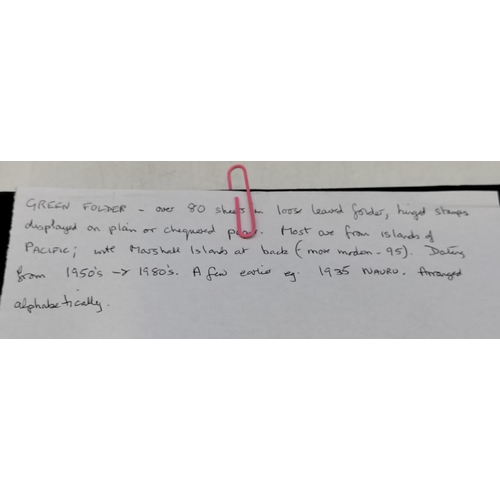 GREEN FOLDER - over 80 sheets in loose leaved folder, hinged stamps
displayed on plain or chequered . Most are from islands of
PACIFIC; Marshall Islands at back (more modern - 95). Dating
from 1950's → 1980's. A few earlier eg. 1935 NAURU. Arranged
alphabetically.